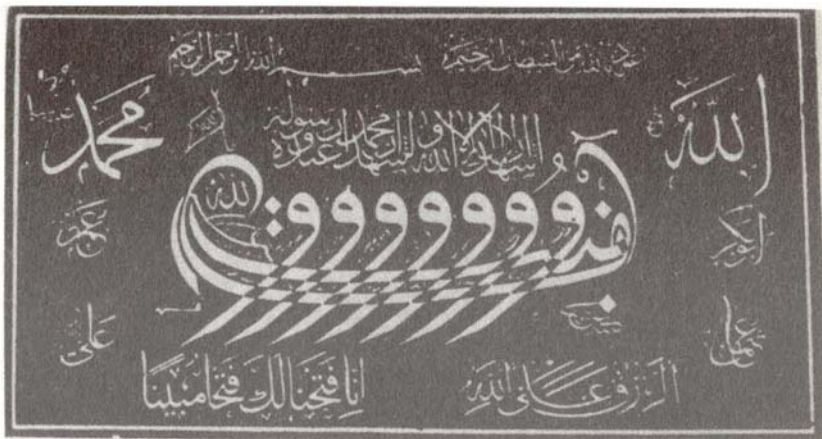 اعوذ بالله من الشيطان الرجيم
بسم الله الرحمن الرحيم
الله
محمد
اشهد ان لا اله الا الله و اشهد ان محمدا عبده و رسوله
الله
و و و و و و و
ابوبكر
عمر
عثمان
على
الرزق على الله
انا فتحنا لك فتحا مبينا